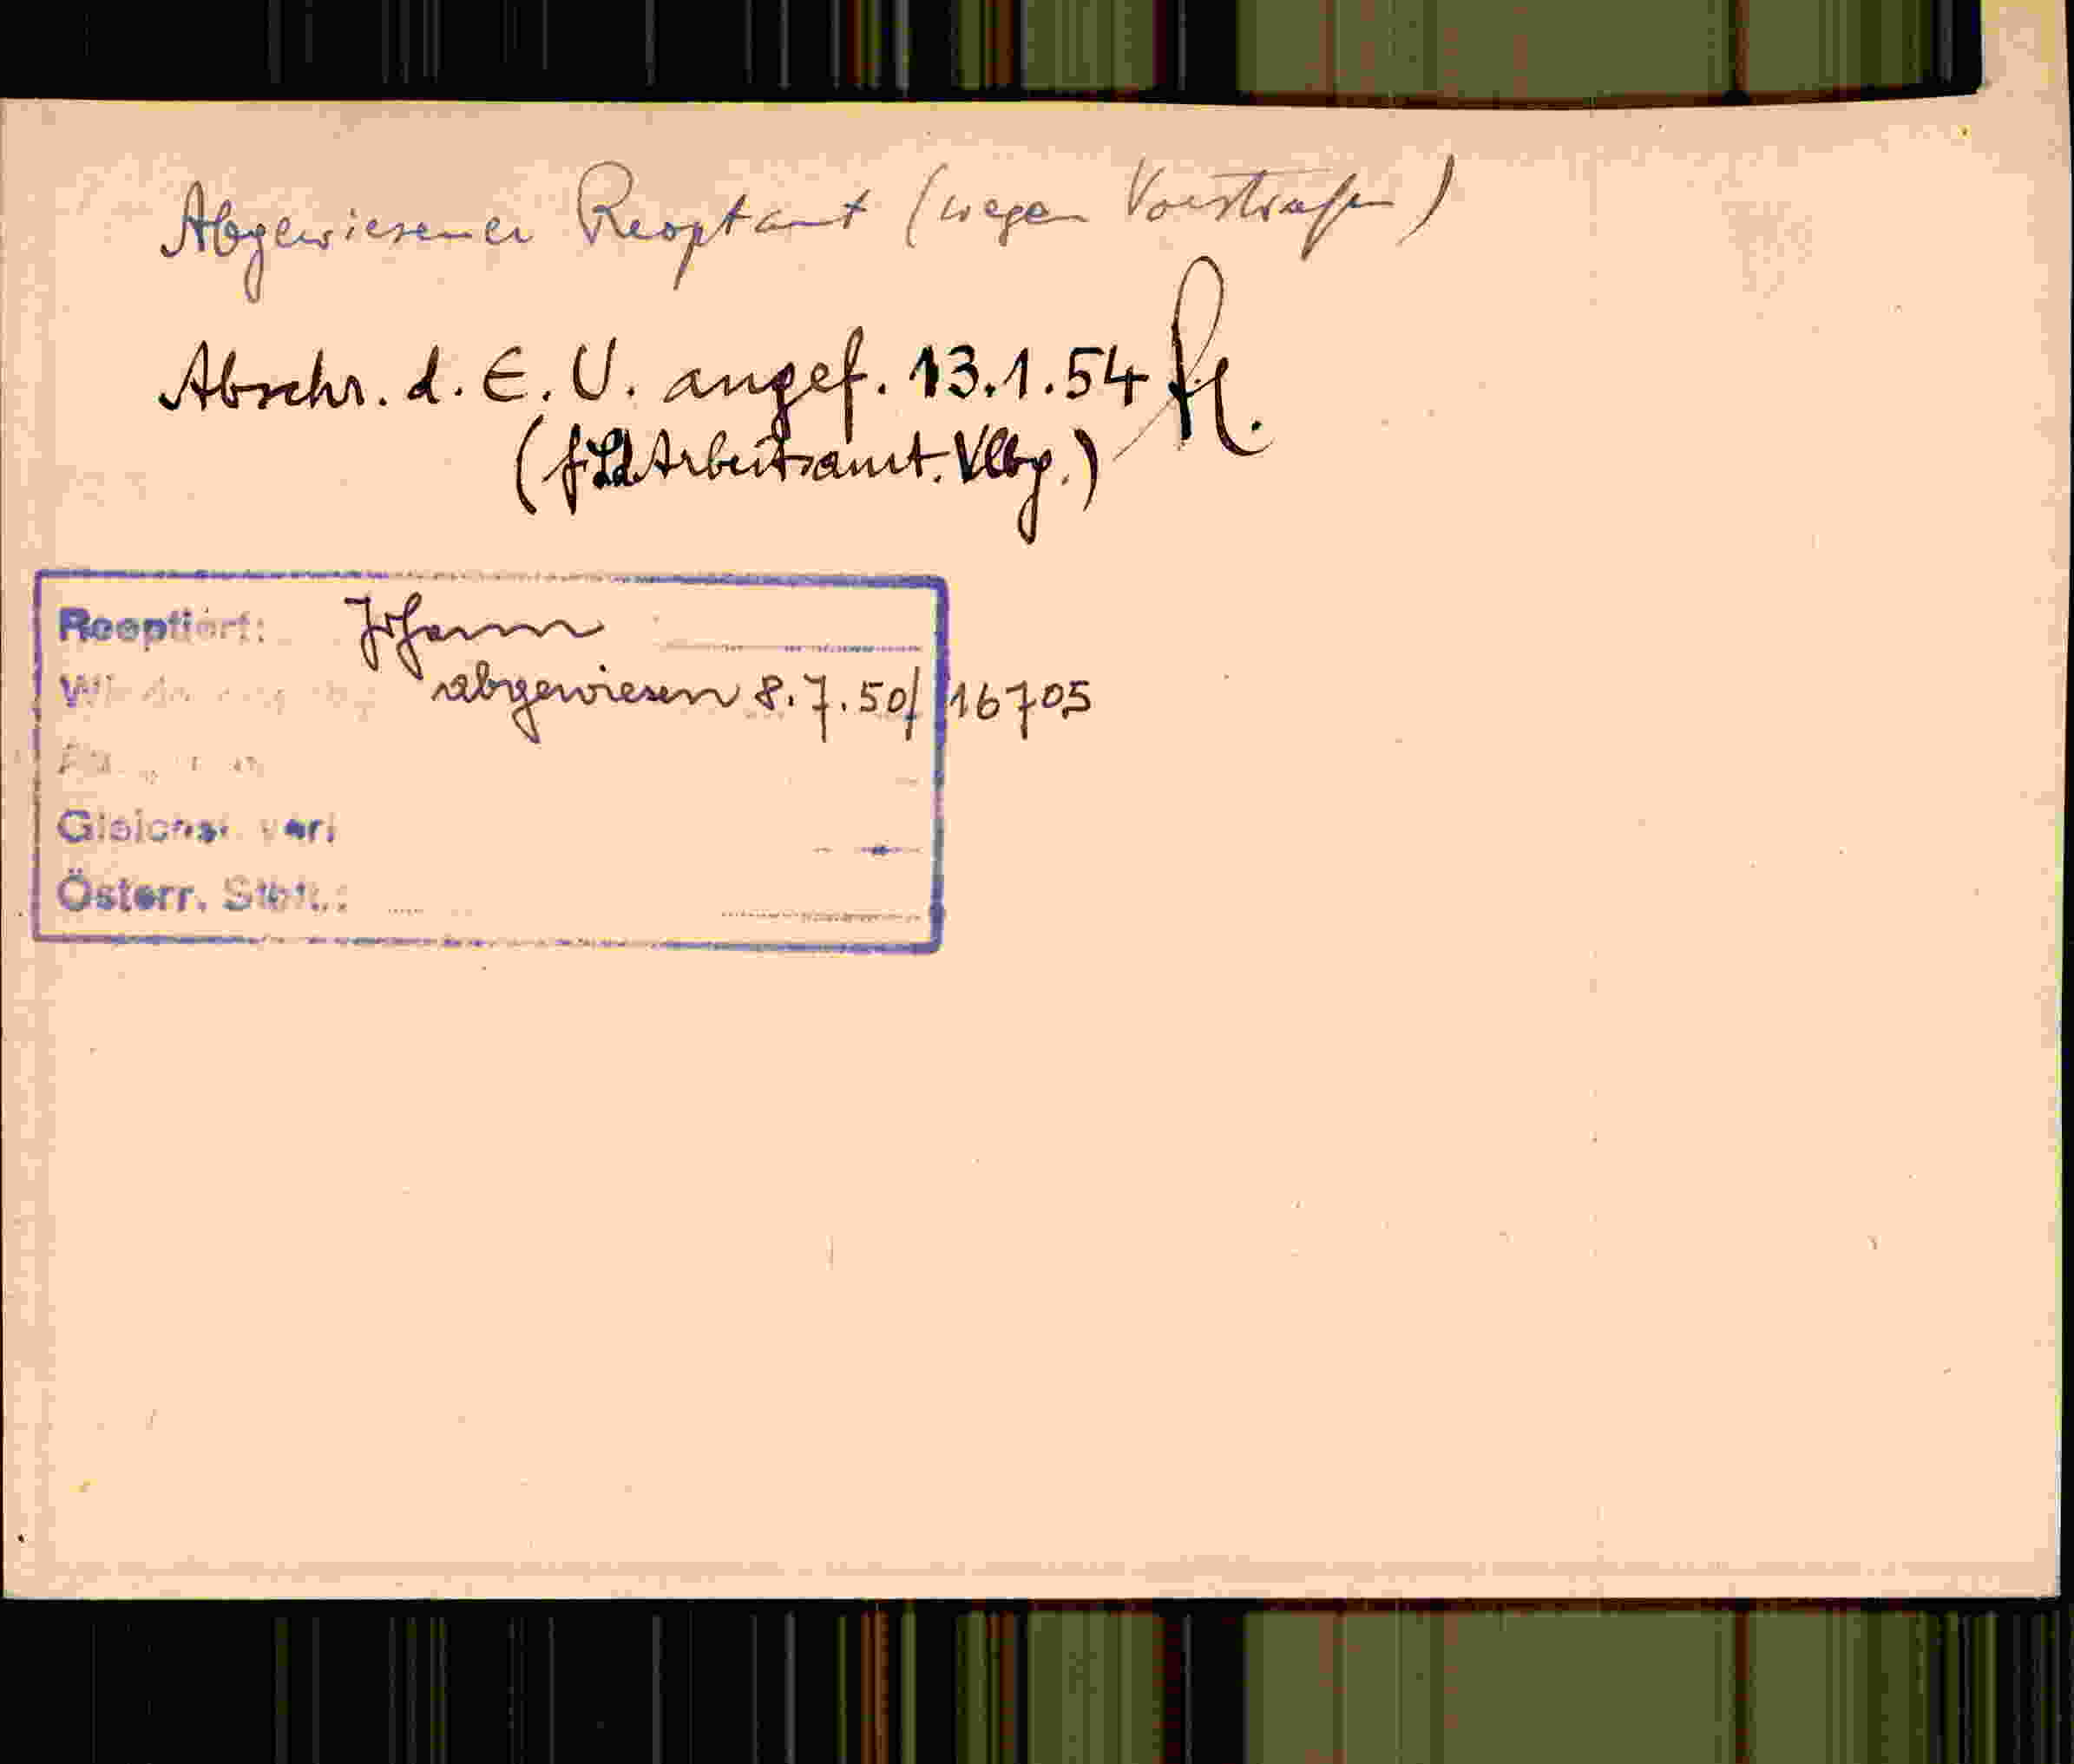 Abgewiesener Reoptant (wegen Vorstrafen)
Abschr. d. E. U. angef. 13.1.54
(f. Ld Arbeitsamt. Vlbg.)
Reoptiert: Johann
abgewiesen 8.7.50/16705
Gleichst. ver.
Österr. Stbft.: